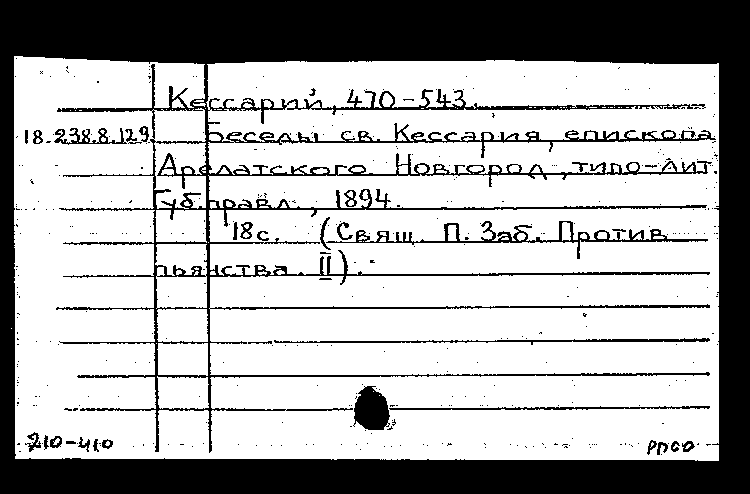 Кессарий, 470-543.
18.238.8.129. Беседы св. Кессария, епископа
Арелатского. Новгород, типо-лит.
Губ.правл., 1894.
18с. (Свящ. П. Заб. Против
пьянства. II).
210-410